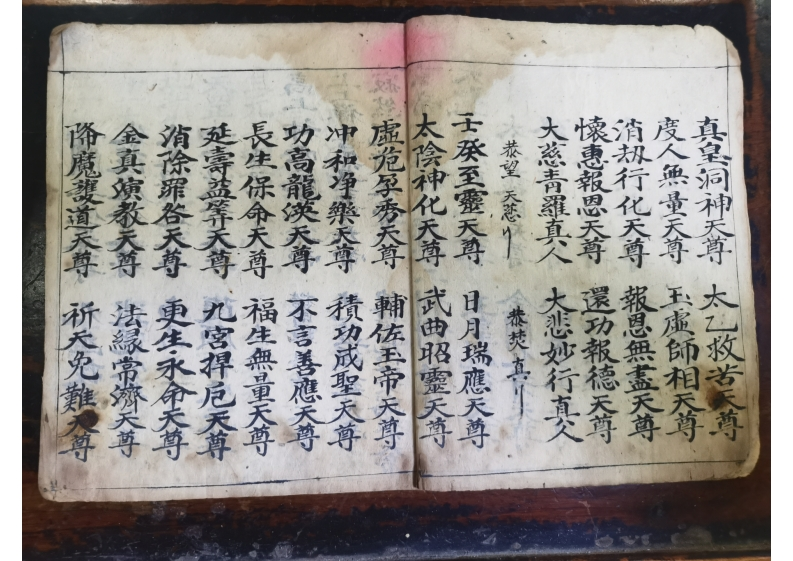 真皇洞神天尊 太乙救苦天尊
度人無量天尊 玉虛師相天尊
消劫行化天尊 報恩無盡天尊
懷惠報恩天尊 還功報德天尊
大慈青羅真人 大悲妙行真人
恭望 天慈 恭焚 真
壬癸至靈天尊 日月瑞應天尊
太陰神化天尊 武曲昭靈天尊
虛危孕秀天尊 輔佐玉帝天尊
冲和净樂天尊 積功成聖天尊
功高龍漢天尊 不言善應天尊
長生保命天尊 福生無量天尊
延壽益筭天尊 九宮捍厄天尊
消除罪咎天尊 更生永命天尊
金真演教天尊 法緣常濟天尊
降魔護道天尊 祈天免難天尊